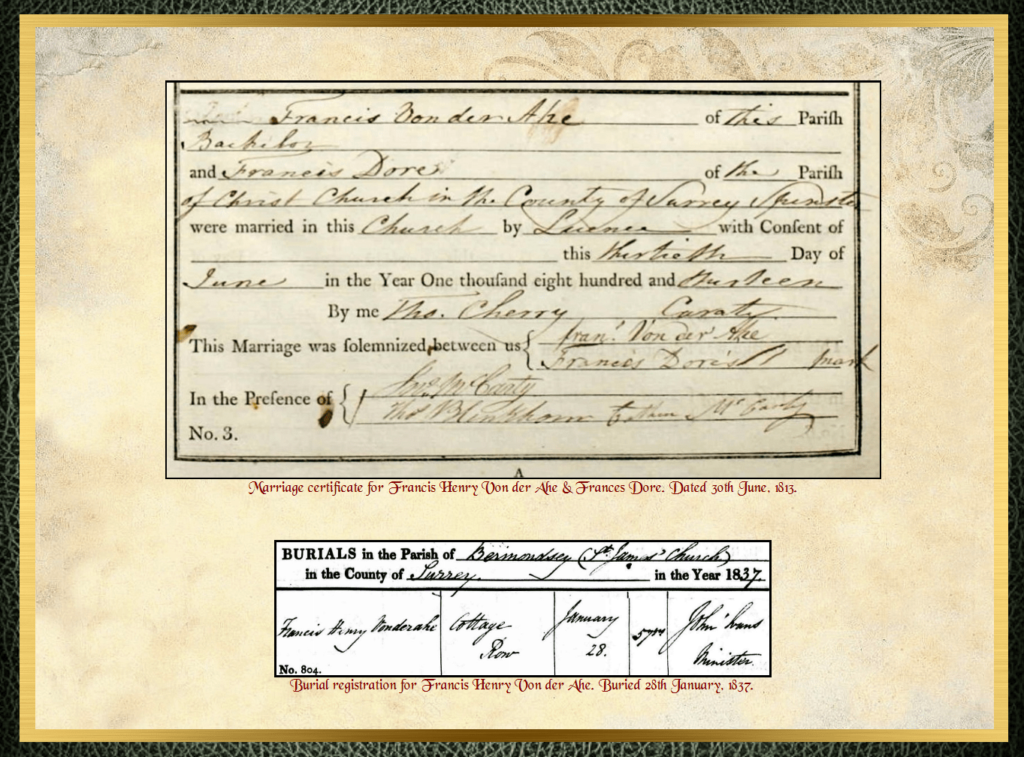 Francis Von der Ahe of this Parish
Bachelor
and Francis Dore of the Parish
of Christ Church in the County of Surrey Spinster
were married in this Church by Licence with Consent of
this thirtieth Day of
June in the Year One thousand eight hundred and thirteen
By me Thos. Cherry Curate
This Marriage was solemnized between us { Fran.s Von der Ahe
Francis Dore's mark
In the Presence of { McCarty
Thos Blenkhorn Esther McCarty
No. 3.
A
Marriage certificate for Francis Henry Von der Ahe & Frances Dore. Dated 30th June, 1813.
BURIALS in the Parish of Bermondsey (St. James' Church)
in the County of Surrey. in the Year 1837.
Francis Henry Vonderahe Cottage Row January 28. 57 John Evans Minister.
No. 804.
Burial registration for Francis Henry Von der Ahe. Buried 28th January, 1837.